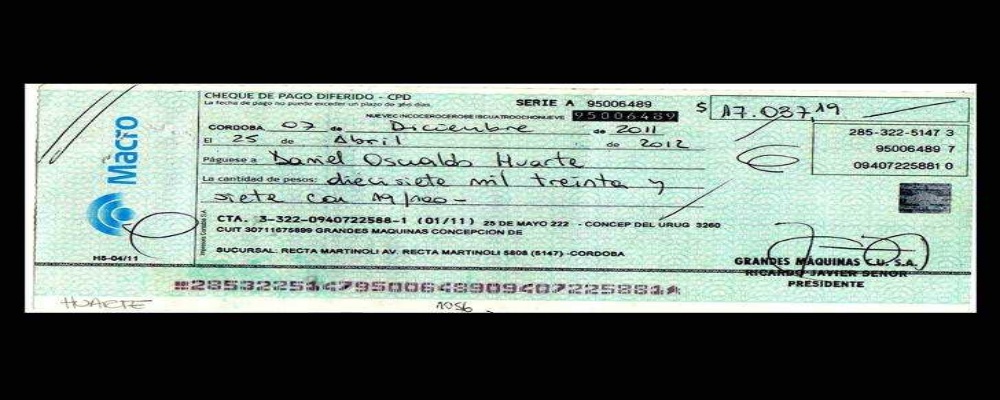 CHEQUE DE PAGO DIFERIDO - CPD
La fecha de pago no puede exceder un plazo de 360 días
SERIE A 95006489
$ 17.037,19
95006489
CORDOBA 07 de Diciembre de 2011
El 25 de Abril de 2012
285-322-5147 3
95006489 7
09407225881 0
Páguese a Daniel Oscualdo Huarte
La cantidad de pesos: diecisiete mil treinta y
siete con 19/100-
Macro
CTA. 3-322-0940722588-1 (01/11) 25 DE MAYO 222 - CONCEP DEL URUG 3260
CUIT 30711675899 GRANDES MAQUINAS CONCEPCION DE
SUCURSAL: RECTA MARTINOLI AV. RECTA MARTINOLI 5808 (5147) -CORDOBA
HS-04/11
GRANDES MAQUINAS C.U. S.A.
RICARDO JAVIER SENOR
PRESIDENTE
HUARTE
1056